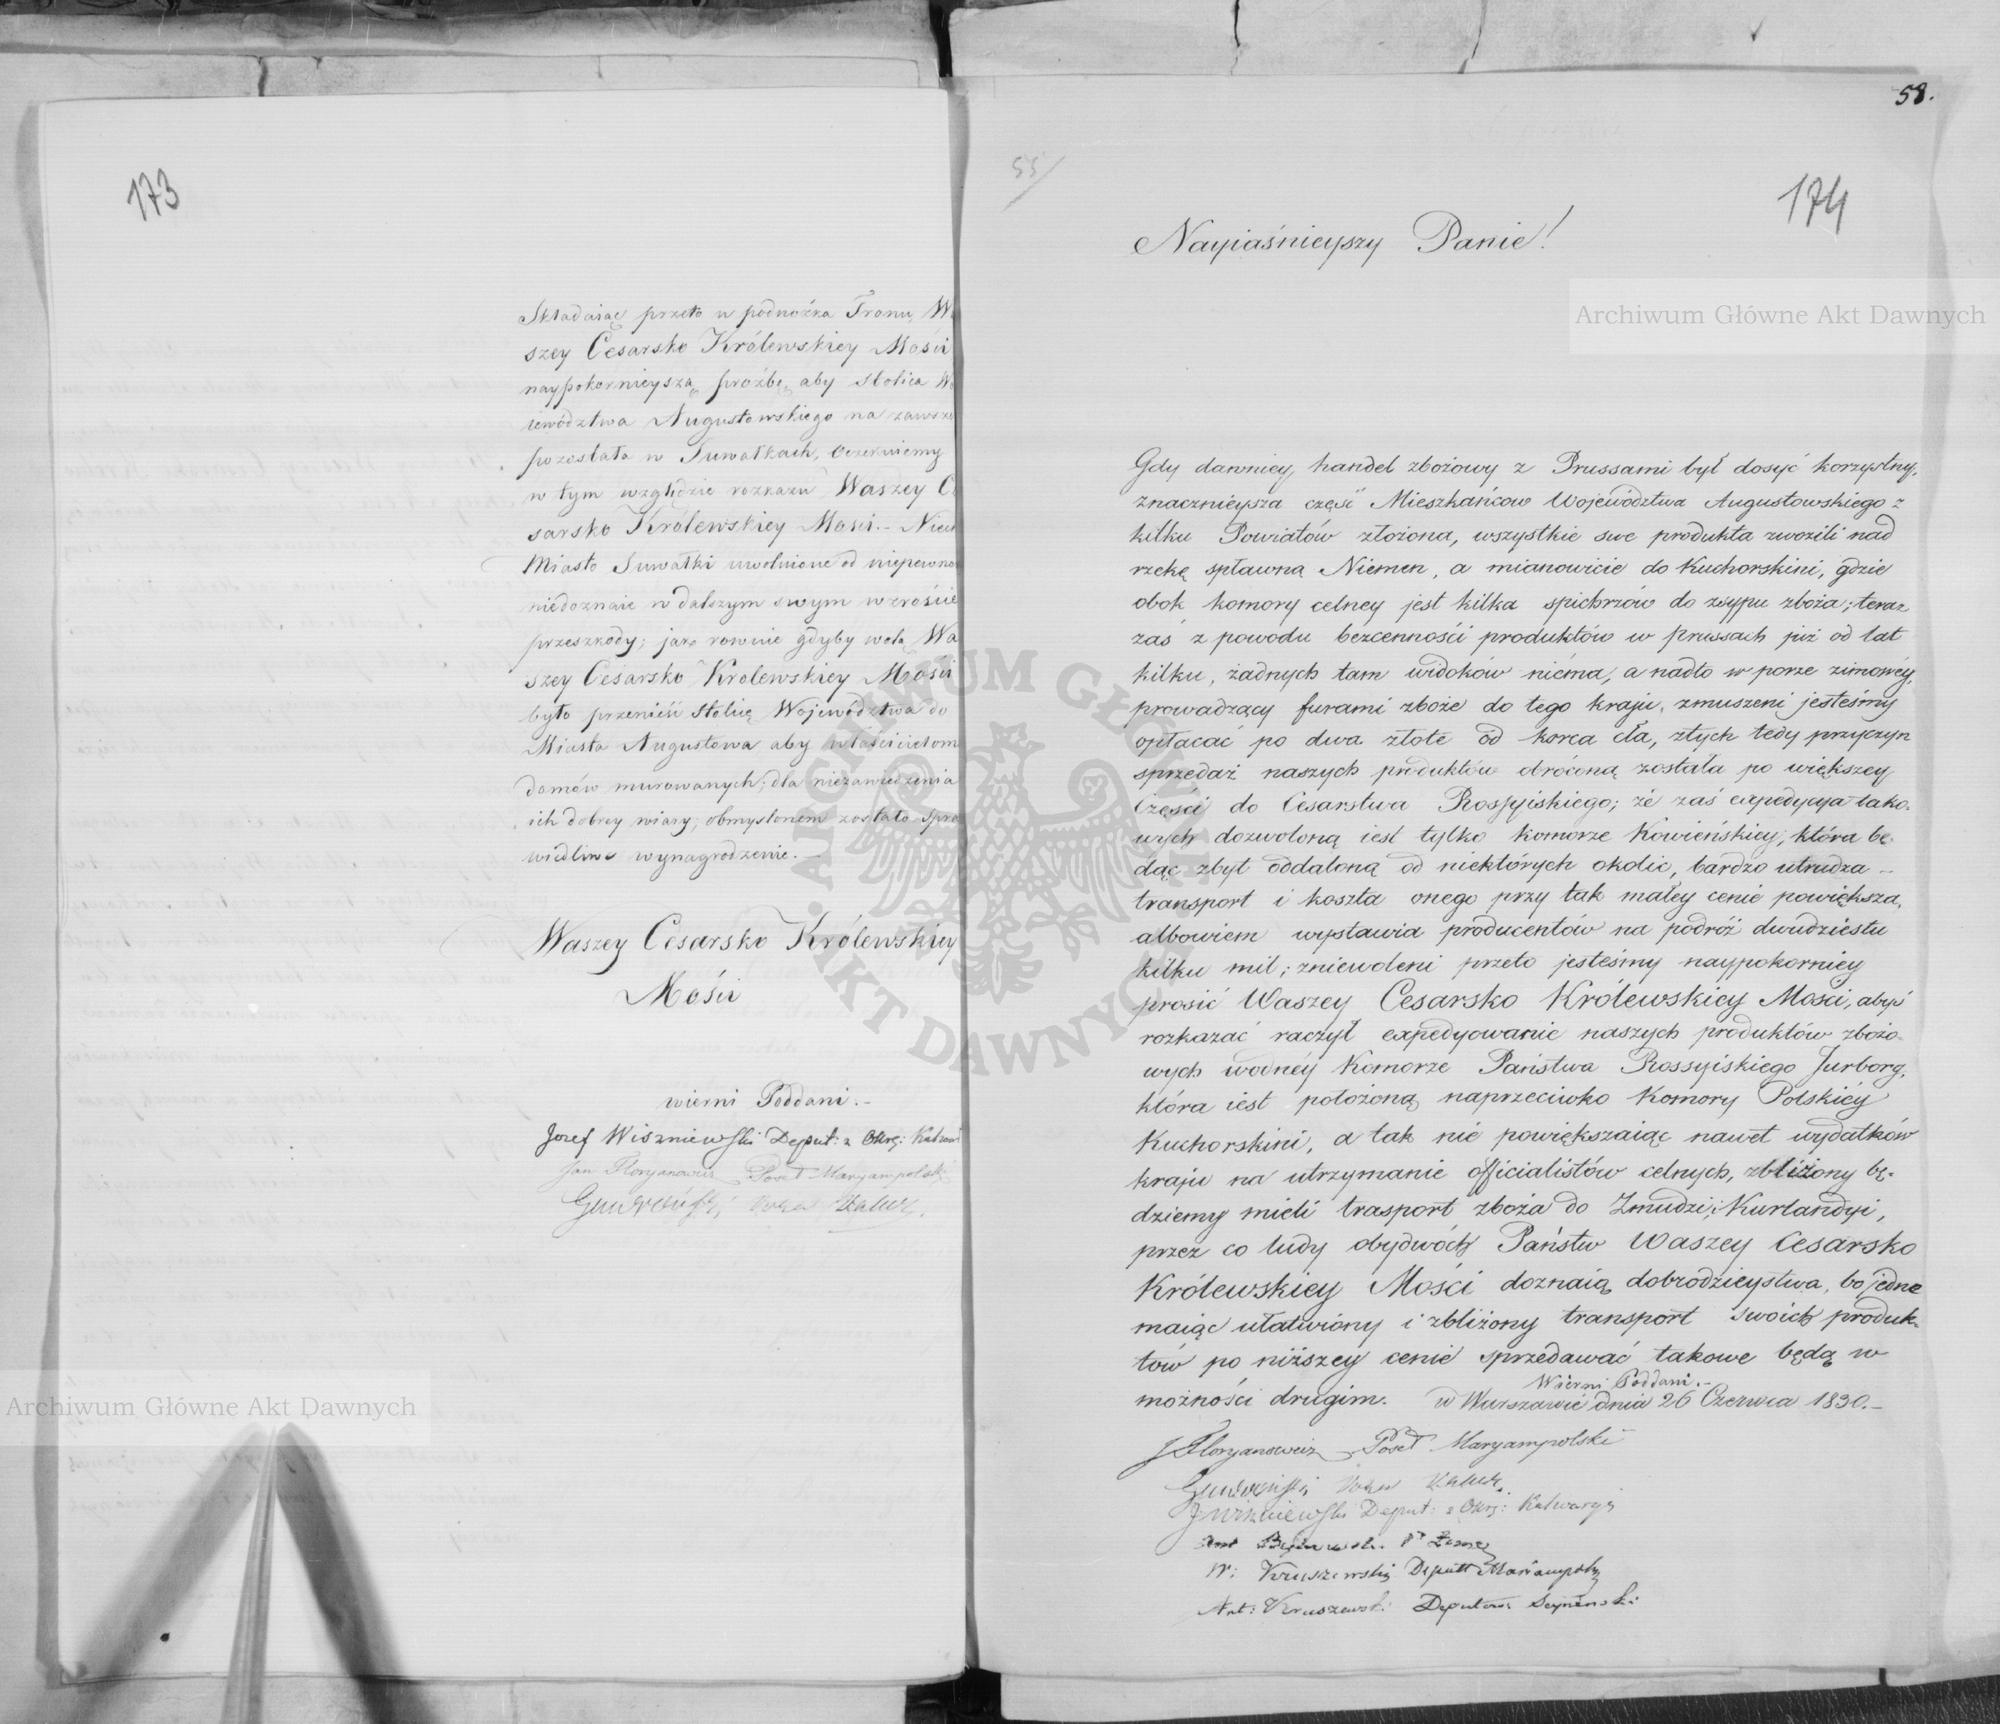 173
Składaiąc przeto u podnóżka Tronu Wa
szey Cesarsko Królewskiey Mości
naypokornieyszą proźbę, aby Stolica Wo
iewództwa Augustowskiego na zawsze
pozostała w Suwałkach, oczekuiemy
w tym względzie rozkazu Waszey Ce
sarsko Królewskiey Mości. – Niech
Miasto Suwałki uwolnione od niepewno
niedoznaie w dalszym swym wzroście
przeszkody; jako rownie gdyby wolą Wa
szey Cesarsko Krolewskiey Mości
było przenieść stolicę Województwa do
Miasta Augustowa aby właścicielom
domów murowanych, dla niezawiedzenia
ich dobrey wiary, obmyslonem zostało spra
wiedliwe wynagrodzenie. –
Waszey Cesarsko Królewskiey
Mości
wierni Poddani. –
Jozef Wiszniewski Deput: z Okrę: Kalwar
Jan Floryanowicz Poseł Maryampolski
58.
55
174
Nayiaśnieyszy Panie!
Gdy dawniey handel zbożowy z Prussami był dosyć korzystny,
znacznieysza część Mieszkańcow Województwa Augustowskiego z
kilku Powiatów złożona, wszystkie swe produkta zwozili nad
rzekę spławną Niemen, a mianowicie do Kuchorskini, gdzie
obok komory celney jest kilka spichrzów do zsypu zboża; teraz
zaś z powodu bezcenności produktów w Prussach już od lat
kilku, żadnych tam widoków niéma, a nadto w porze zimowéy,
prowadzący furami zboże do tego kraju, zmuszeni jesteśmy
opłacać po dwa złote od korca cła, ztych tedy przyczyn
sprzedaż naszych produktów obróconą została po większey
części do Cesarstwa Rossyiskiego; że zaś expedycya tako-
wych dozwoloną iest tylko komorze Kowieńskiey, która bę-
dąc zbyt oddaloną od niektórych okolic, bardzo utrudza –
transport i koszta onego przy tak małey cenie powiększa,
albowiem wystawia producentów na podróż dwudziestu
kilku mil; zniewoleni przeto jesteśmy naypokorniey
prosić Waszey Cesarsko Królewskiey Mości, abyś
rozkazać raczył expedyowanie naszych produktów zbożo-
wych wodnéy Komorze Państwa Rossyiskiego Jurborg,
która iest położoną naprzeciwko Komory Polskiéy
Kuchorskini, a tak nie powiększaiąc nawet wydatków
kraju na utrzymanie officialistów celnych, zbliżony bę-
dziemy mieli trasport zboża do Zmudzi i Kurlandyi,
przez co ludy obydwóch Państw Waszey Cesarsko
Królewskiey Mości doznaią dobrodzieystwa, bo jedne
maiąc ułatwiony i zbliżony transport swoich produk-
tów po niższey cenie sprzedawać takowe będą w
możności drugim.
Wierni Poddani. –
w Warszawie dnia 26 Czerwca 1830. –
J Floryanowicz Poseł Maryampolski
J Wiszniewski Deput: z Okrę: Kalwaryi
W: Kruszewski Deputt Mariampolsky
Ant: Kruszewski Deputow: Seynenski
Archiwum Główne Akt Dawnych
Archiwum Główne Akt Dawnych
ARCHIWUM GŁÓWNE AKT DAWNYCH